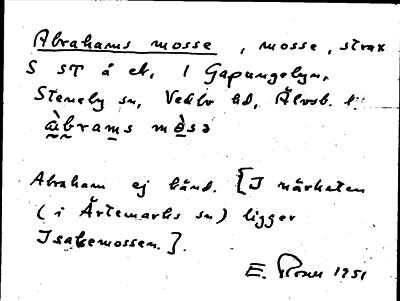 Abrahams mosse, mosse, strax
S ST å ek, i Gapungebyn,
Steneby sn, Vedbo hd, Älvsb. l.
àbrams mòsə
Abraham ej känd. [I närheten
(i Ärtemarks sn) ligger
Isakemossen.].
E. 1951